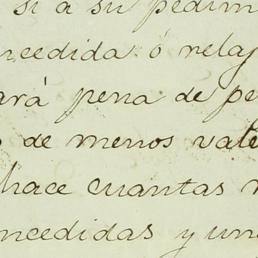 si á su pedim
ncedida ó relaj
ará pena de pe
de menos vale
hace cuantas
ncedidas y un